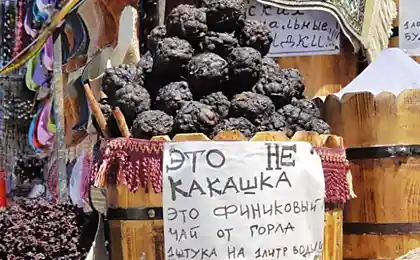 ские
альные
дки!!!
1 литр
ЭТО НЕ
КАКАШКА
ЭТО ФИНИКОВЫЙ
ЧАЙ ОТ ГОРЛА
1 ШТУКА НА 1 ЛИТР ВОДЫ!!!